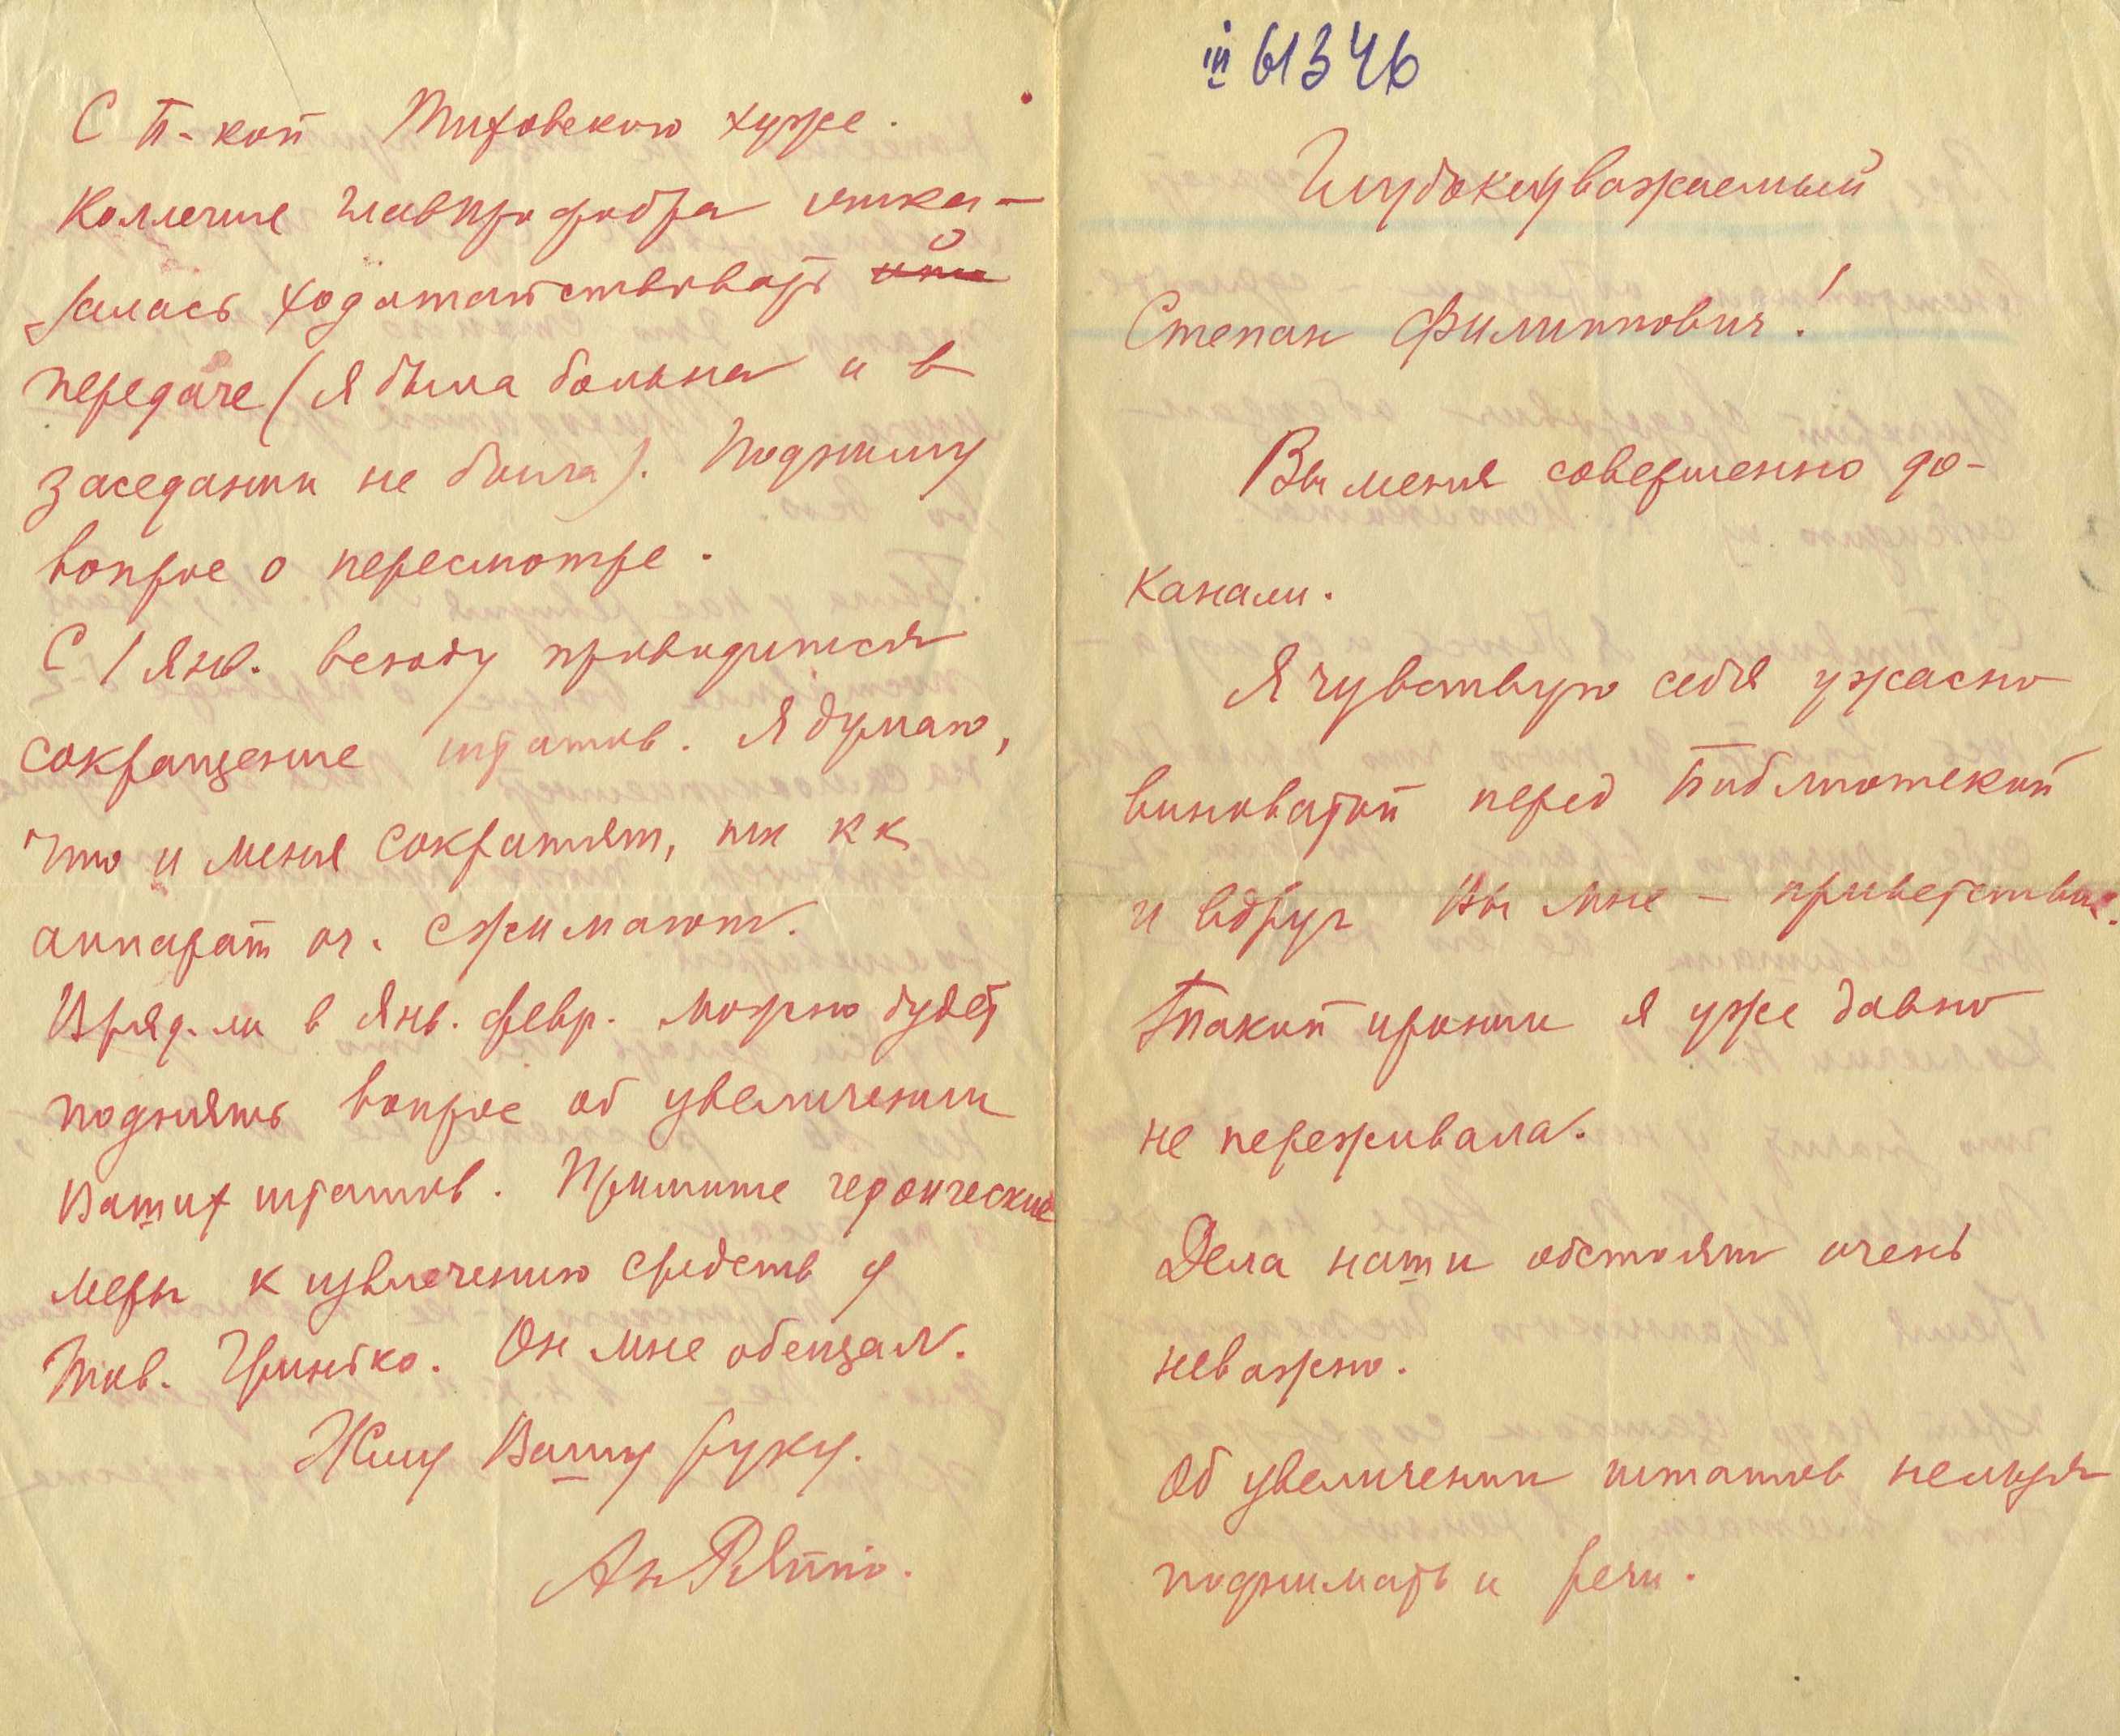 III 61346
Глубокоуважаемый
Степан Филиппович!
Вы меня совершенно до-
канали.
Я чувствую себя ужасно
виноватой перед Библиотекой
и вдруг Вы мне – приветствие.
Такой иронии я уже давно
не переживала.
Дела наши обстоят очень
неважно.
Об увеличении штатов нельзя
поднимать и речи.
С Б-кой хуже.
Коллегия Главпрофобра отка-
залась ходатайствовать о
передаче (я была больна и в
заседании не была). Подниму
вопрос о пересмотре.
С 1 янв. всюду проводится
сокращение штатов. Я думаю,
что и меня сократят, тк кк
аппарат оч. сжимают.
Вряд-ли в Янв. февр. можно будет
поднять вопрос об увеличении
Ваших штатов. Примите героические
меры к извлечению средств у
Тов. Гринько. Он мне обещал.
Жму Вашу руку.